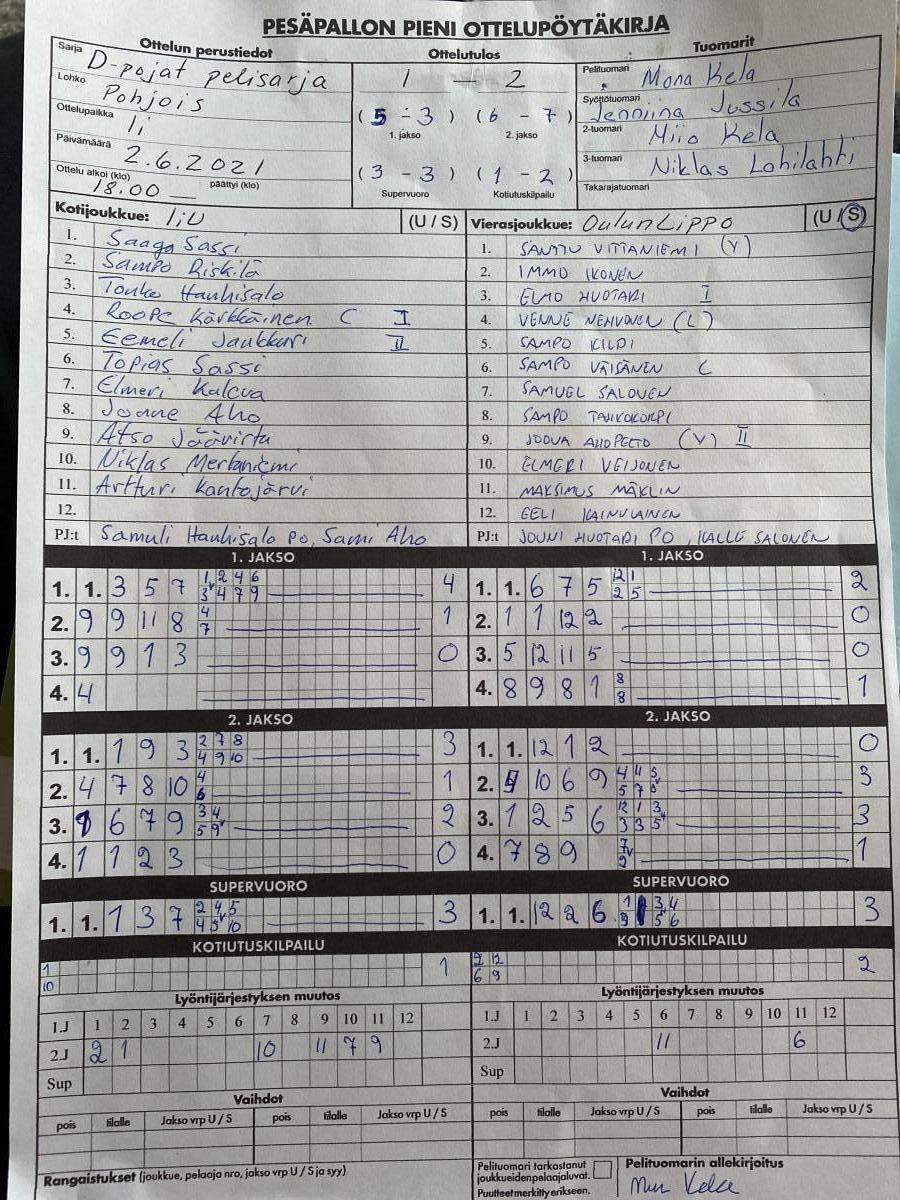 PESÄPALLON PIENI OTTELUPÖYTÄKIRJA
Ottelun perustiedot
Sarja D-pojat pelisarja
Lohko Pohjois
Ottelupaikka Ii
Päivämäärä 2.6.2021
Ottelu alkoi (klo) 18.00 päättyi (klo)
Ottelutulos
1 — 2
(5 - 3) (6 - 7)
1. jakso 2. jakso
(3 - 3) (1 - 2)
Supervuoro Kotiutuskilpailu
Tuomarit
Pelituomari Mona Kela
Syöttötuomari Jenniina Jussila
2-tuomari Miio Kela
3-tuomari Niklas Lohilahti
Takarajatuomari
Kotijoukkue: IiU (U / S)
1. Saaga Sassi
2. Sampo Riskilä
3. Touko Hauhisalo
4. Roope Kärkkäinen C I
5. Eemeli Jaukkuri II
6. Topias Sassi
7. Elmeri Kaleva
8. Joane Aho
9. Atso Jäävirta
10. Niklas Merlaniemi
11. Artturi Kantojärvi
12.
PJ:t Samuli Hauhisalo PO, Sami Aho
Vierasjoukkue: Oulun Lippo (U / S)
1. SANTTU VITTANIEMI (V)
2. IMMO IKONEN
3. ELMO HUOTARI I
4. VENNE NEHVONEN (L)
5. SAMPO KILPI
6. SAMPO VÄISÄNEN C
7. SAMUEL SALONEN
8. SAMPO TAUKOKORPI
9. JOONA AHOPELTO (V) II
10. ELMERI VEIJONEN
11. MAKSIMUS MÄKLIN
12. EELI KAINULAINEN
PJ:t JOUNI HUOTARI PO, KALLE SALONEN
1. JAKSO
1. 1. 3 5 7 1 2 4 6 4
3 4 7 9
2. 9 9 11 8 4 1
7
3. 9 9 1 3 0
4. 4
1. JAKSO
1. 1. 6 7 5 12 1 2
2 5
2. 1 1 12 2 0
3. 5 12 11 5 0
4. 8 9 8 1 8 1
8
2. JAKSO
1. 1. 1 9 3 2 7 8 3
4 9 10
2. 4 7 8 10 4 1
6
3. 1 6 7 9 3 4 2
5 9
4. 1 1 2 3 0
2. JAKSO
1. 1. 12 1 2 0
2. 10 6 9 4 11 5 3
5 7 8
3. 1 2 5 6 12 1 3 3
3 3 5
4. 7 8 9 7 1
2
SUPERVUORO
1. 1. 1 3 7 2 4 5 3
4 5 10
SUPERVUORO
1. 1. 12 2 6 1 3 4 3
3 5 6
KOTIUTUSKILPAILU
1 1
10
KOTIUTUSKILPAILU
2 12 2
6 9
Lyöntijärjestyksen muutos
1.J 1 2 3 4 5 6 7 8 9 10 11 12
2.J 2 1 10 11 7 9
Sup
Lyöntijärjestyksen muutos
1.J 1 2 3 4 5 6 7 8 9 10 11 12
2.J 11 6
Sup
Vaihdot
pois tilalle Jakso vrp U / S pois tilalle Jakso vrp U / S
Vaihdot
pois tilalle Jakso vrp U / S pois tilalle Jakso vrp U / S
Rangaistukset (joukkue, pelaaja nro, jakso vrp U / S ja syy)
Pelituomari tarkastanut
joukkueiden pelaajaluvat.
Puutteet merkitty erikseen.
Pelituomarin allekirjoitus